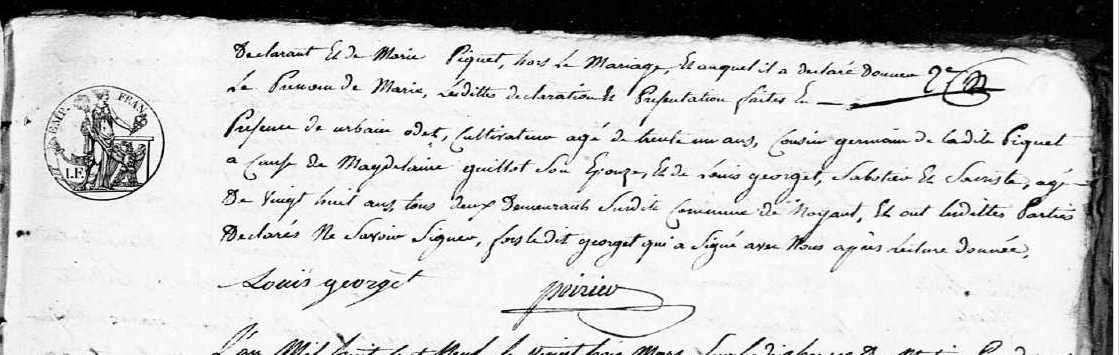 Declarant Et de Marie Piquet, hors Le Mariage, Et auquel il a declaré Donner
Le Prenom de Marie, Lesdittes declaration Et Presentation faites En
Presence de urbain odet, Cultivateur agé de trente un ans, Cousin germain de Ladite Piquet
a Cause de Magdelaine guillot Son Epouze, Et de Louis georget, Sabotier Et Sacriste, agé
De Vingt huit ans, tous deux Demeurants Susdite Commune de Noyant, Et ont lesdittes Parties
Declarés Ne Savoir Signer, fors ledit georget qui a Signé avec Nous apres Lecture donnée,
EMP. FRAN
I.F.
Louis georget
poirier
L'an Mil huit Cent Neuf, le Vingt trois Mars